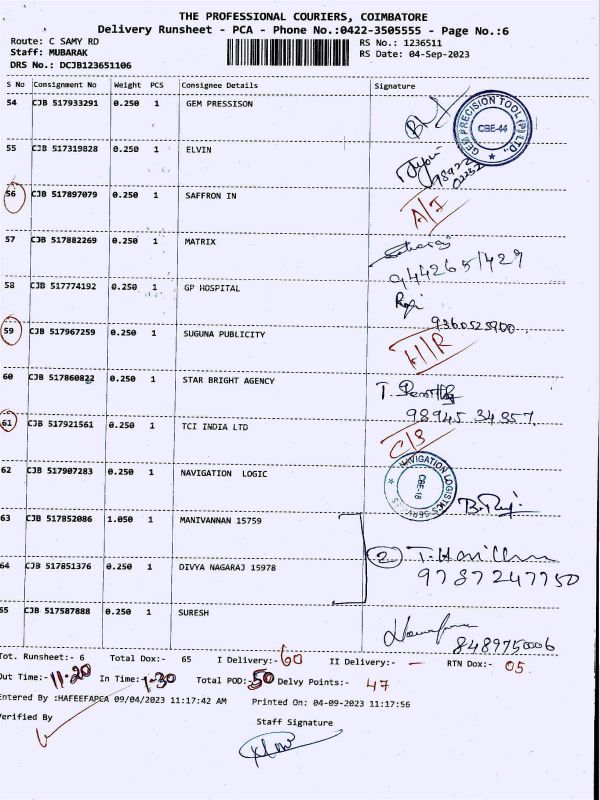 THE PROFESSIONAL COURIERS, COIMBATORE
Delivery Runsheet - PCA - Phone No.:0422-3505555 - Page No.:6
Route: C SAMY RD RS No.: 1236511
Staff: MUBARAK RS Date: 04-Sep-2023
DRS No.: DCJB123651106
S No Consignment No Weight PCS Consignee Details Signature
54 CJB 517933291 0.250 1 GEM PRESSISON
GEM PRECISION TOOL (P) LTD., CBE-44
55 CJB 517319828 0.250 1 ELVIN
56 CJB 517897079 0.250 1 SAFFRON IN A/I
57 CJB 517882269 0.250 1 MATRIX
9442651429
58 CJB 517774192 0.250 1 GP HOSPITAL
9360525900
59 CJB 517967259 0.250 1 SUGUNA PUBLICITY
60 CJB 517860822 0.250 1 STAR BRIGHT AGENCY
98945 34357
61 CJB 517921561 0.250 1 TCI INDIA LTD
62 CJB 517907283 0.250 1 NAVIGATION LOGIC
NAVIGATION LOGISTICS SERVICES CBE-18
63 CJB 517852086 1.050 1 MANIVANNAN 15759
2
64 CJB 517851376 0.250 1 DIVYA NAGARAJ 15978
9787247750
65 CJB 517587888 0.250 1 SURESH
8489750006
Tot. Runsheet:- 6 Total Dox:- 65 I Delivery:- 60 II Delivery:- — RTN Dox:- 05
Out Time:- 11.20 In Time:- 1-30 Total POD:- 50 Delvy Points:- 47
Entered By :HAFEEFAPCA 09/04/2023 11:17:42 AM Printed On: 04-09-2023 11:17:56
Verified By
Staff Signature